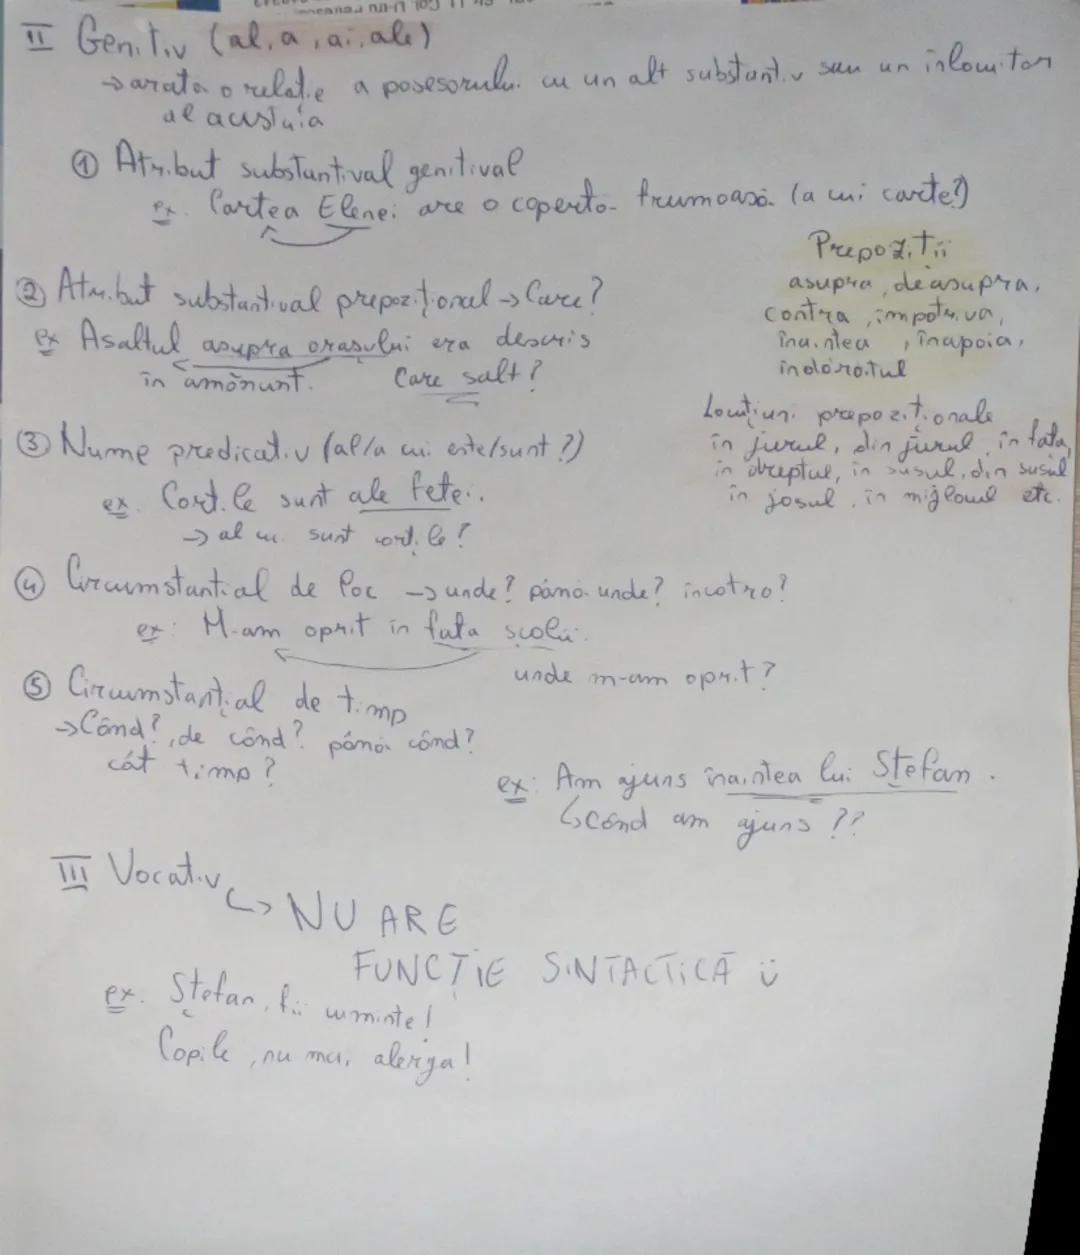 II Genitiv (al, a, ai, ale)
→ arată o relație a posesorului cu un alt substantiv sau un înlocuitor
al acestuia
① Atribut substantival genitival
ex. Cartea Elenei are o copertă frumoasă (a cui carte?)
② Atribut substantival prepozițional → Care?
ex Asaltul asupra orașului era descris
în amănunt. Care salt?
Prepoziții
asupra, deasupra,
contra, împotriva,
înaintea, înapoia,
îndărătul
Locuțiuni prepoziționale
în jurul, din jurul, în fața,
în dreptul, în susul, din susul
în josul, în mijlocul etc.
③ Nume predicativ (al/a cui este/sunt?)
ex. Cărțile sunt ale fetei.
→ al cui sunt cărțile?
④ Circumstanțial de loc → unde? până unde? încotro?
ex: M-am oprit în fața școlii.
unde m-am oprit?
⑤ Circumstanțial de timp
→ Când?, de când? până când?
cât timp?
ex: Am ajuns înaintea lui Ștefan.
↳ Când am ajuns??
III Vocativ
↳ NU ARE
FUNCȚIE SINTACTICĂ ü
ex. Ștefan, fii cuminte!
Copile, nu mai alerga!